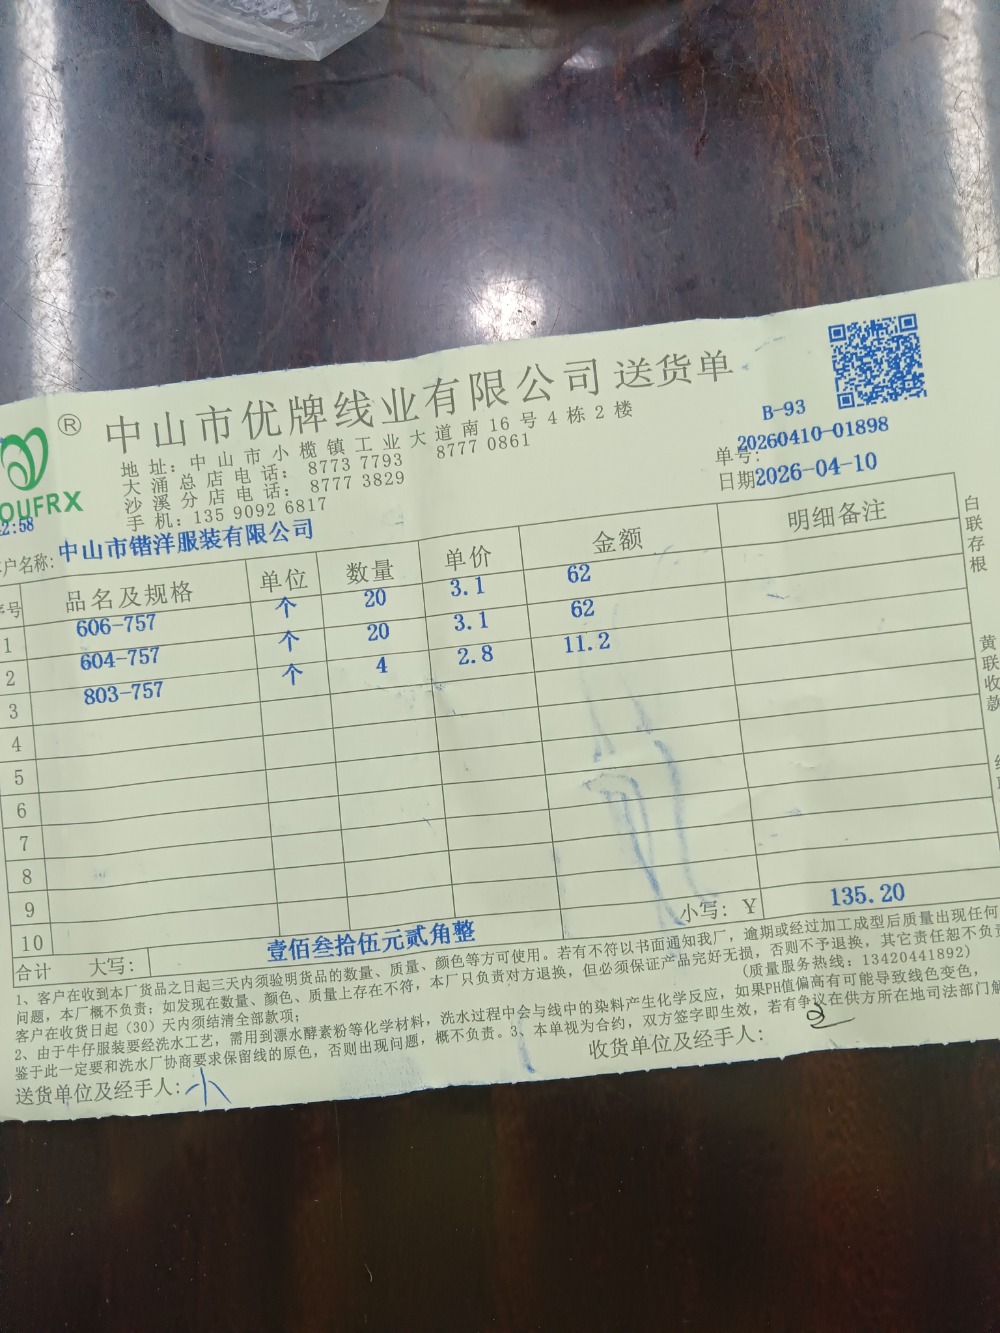 ® 中山市优牌线业有限公司 送货单
OUFRX
地址：中山市小榄镇工业大道南16号4栋2楼
大涌总店电话：8773 7793 8777 0861
沙溪分店电话：8777 3829
手机：135 9092 6817
B-93
单号：20260410-01898
日期 2026-04-10
2:58
户名称：中山市锴洋服装有限公司
序号 品名及规格 单位 数量 单价 金额 明细备注
1 606-757 个 20 3.1 62
2 604-757 个 20 3.1 62
3 803-757 个 4 2.8 11.2
4
5
6
7
8
9
10
合计 大写：壹佰叁拾伍元贰角整 小写：Y 135.20
1、客户在收到本厂货品之日起三天内须验明货品的数量、质量、颜色等方可使用。若有不符以书面通知我厂，逾期或经过加工成型后质量出现任何
问题，本厂概不负责；如发现在数量、颜色、质量上存在不符，本厂只负责对方退换，但必须保证产品完好无损，否则不予退换，其它责任恕不负责
客户在收货日起（30）天内须结清全部款项； （质量服务热线：13420441892）
2、由于牛仔服装要经洗水工艺，需用到漂水酵素粉等化学材料，洗水过程中会与线中的染料产生化学反应，如果PH值偏高有可能导致线色变色，
鉴于此一定要和洗水厂协商要求保留线的原色，否则出现问题，概不负责。3、本单视为合约，双方签字即生效，若有争议在供方所在地司法部门解
送货单位及经手人：小
收货单位及经手人：
白联存根
黄联收款